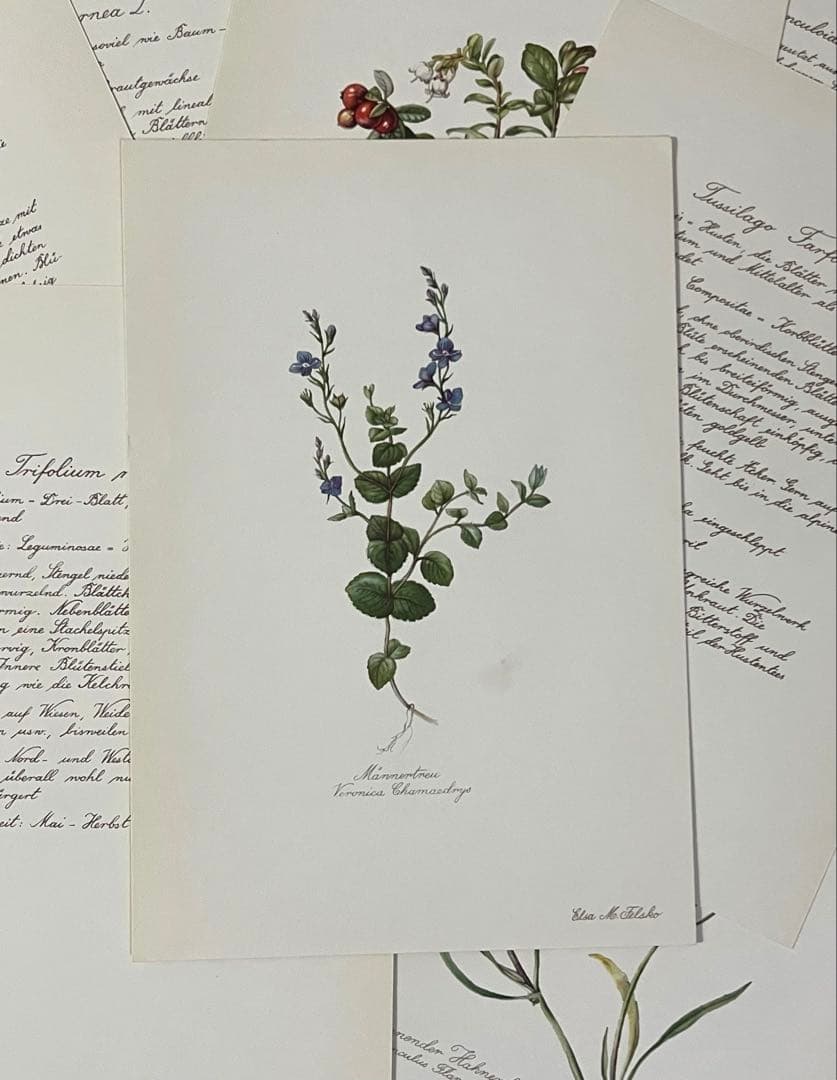 rnea L.
soviel wie Baum-
rautgewächse
mit lineal
Blättern
ze mit
etwas
dichten
nen. Blü-
Trifolium
ium - Drei-Blatt,
nd
e: Leguminosae =
ernd, Stengel niede
wurzelnd. Blättch
rmig. Nebenblätte
n eine Stachelspitz
rvig, Kronblätter,
Innere Blütenstiel
g wie die Kelchr
auf Wiesen, Weide
n usw., bisweilen
Nord- und West
überall wohl nu
rgert
eit: Mai - Herbst
Männertreu
Veronica Chamaedrys
Elsa M. Felsko
nculoid
Tussilago Tarf
= Husten, die Blätter
tum und Mittelalter als
det
Compositae = Korbblütt
ohne oberirdischen Stenge
Blüte erscheinenden Blätte
bis breiteiförmig, ausg
im Durchmesser, unte
Blütenschaft einköpfig,
ten goldgelb
feuchte Äcken Gern auf
Geht bis in die alpin
a eingeschleppt
ril
greiche Wurzelwerk
Unkraut. Die
Bitterstoff und
il des Hustentees
nender Hahne
culus Flam